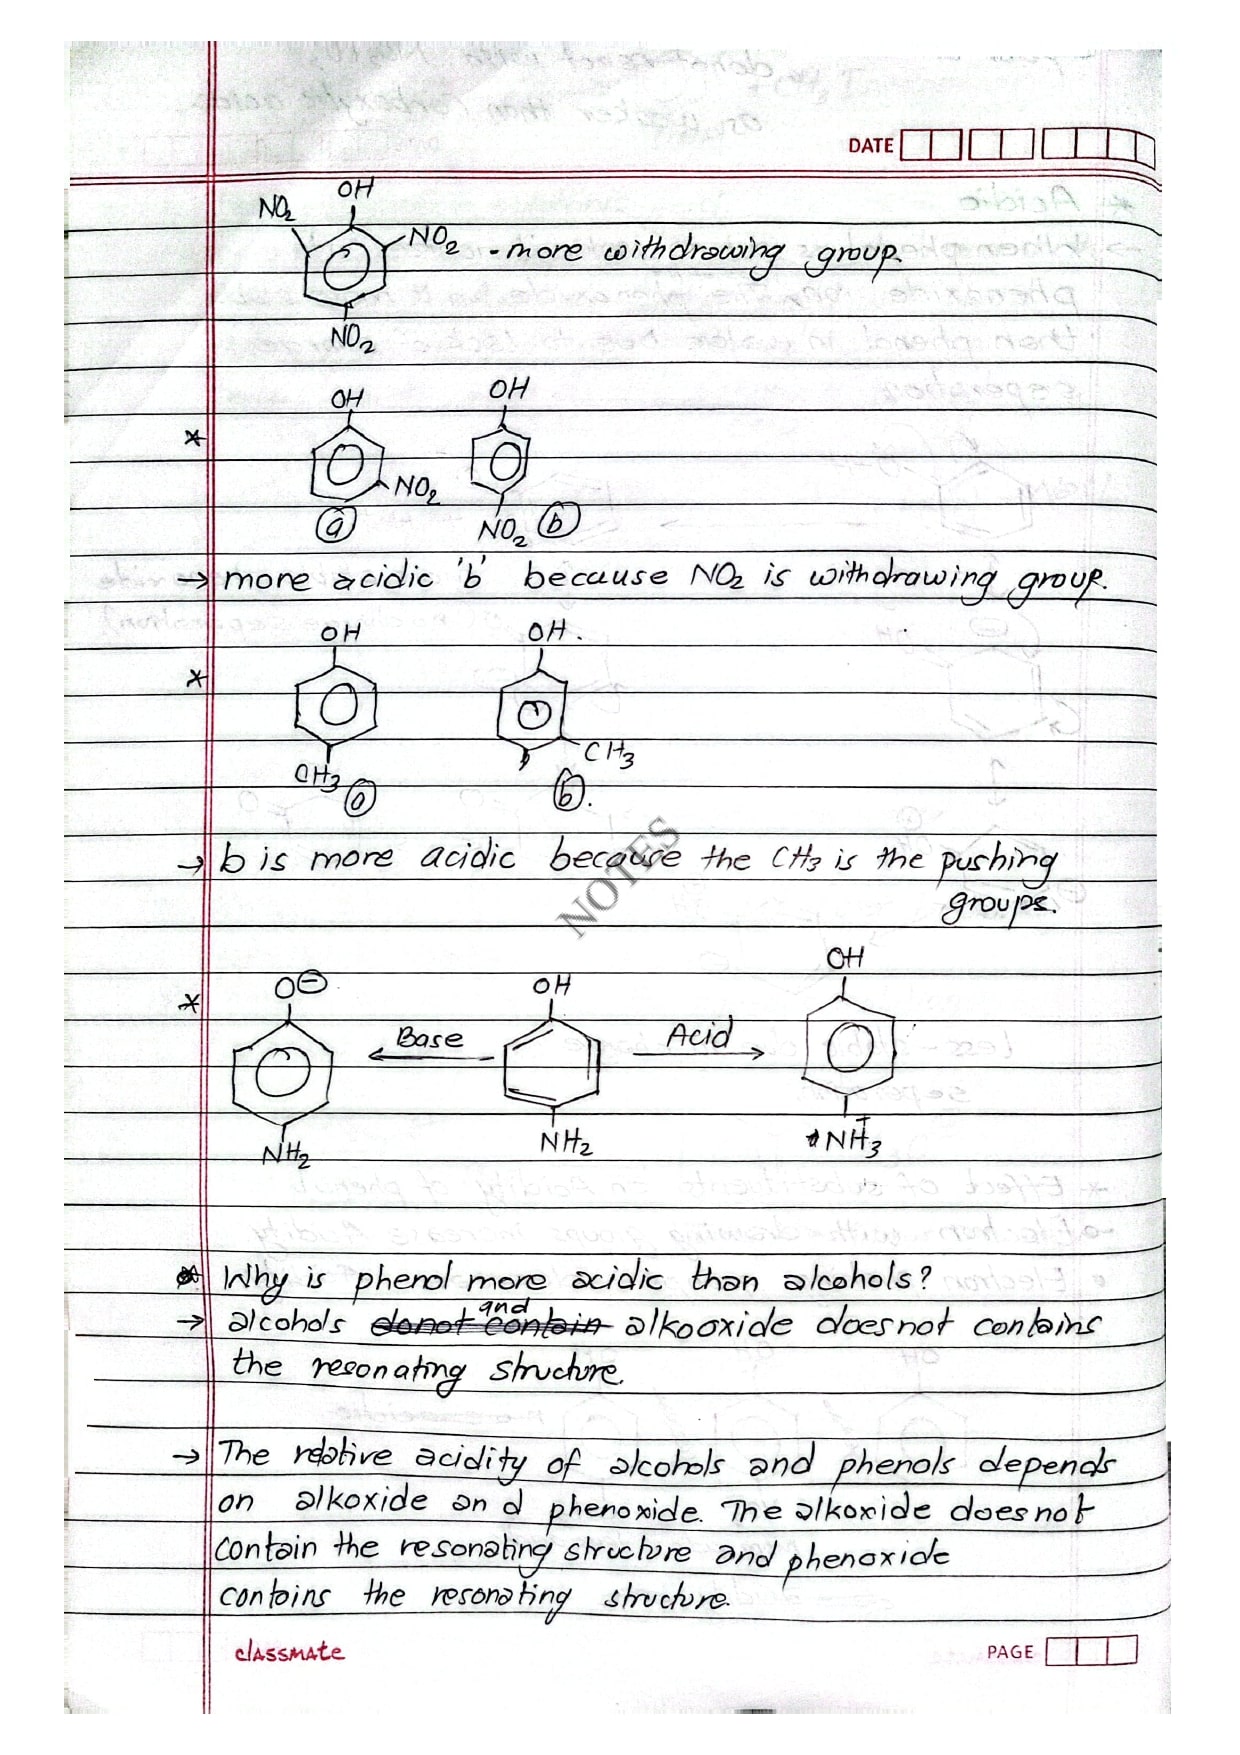 DATE
OH
NO2
NO2 - more withdrawing group.
NO2
OH OH
*
NO2
a NO2 b
→ more acidic 'b' because NO2 is withdrawing group.
OH OH.
*
CH3
CH3 a b.
→ b is more acidic because the CH3 is the pushing
groups.
NOTES
OH
* O⊖ OH
Base Acid
NH2 NH2 +NH3
* Why is phenol more acidic than alcohols?
and
→ alcohols donot contain alkooxide doesnot contains
the resonating structure.
→ The relative acidity of alcohols and phenols depends
on alkoxide and phenoxide. The alkoxide doesnot
contain the resonating structure and phenoxide
contains the resonating structure.
classmate PAGE